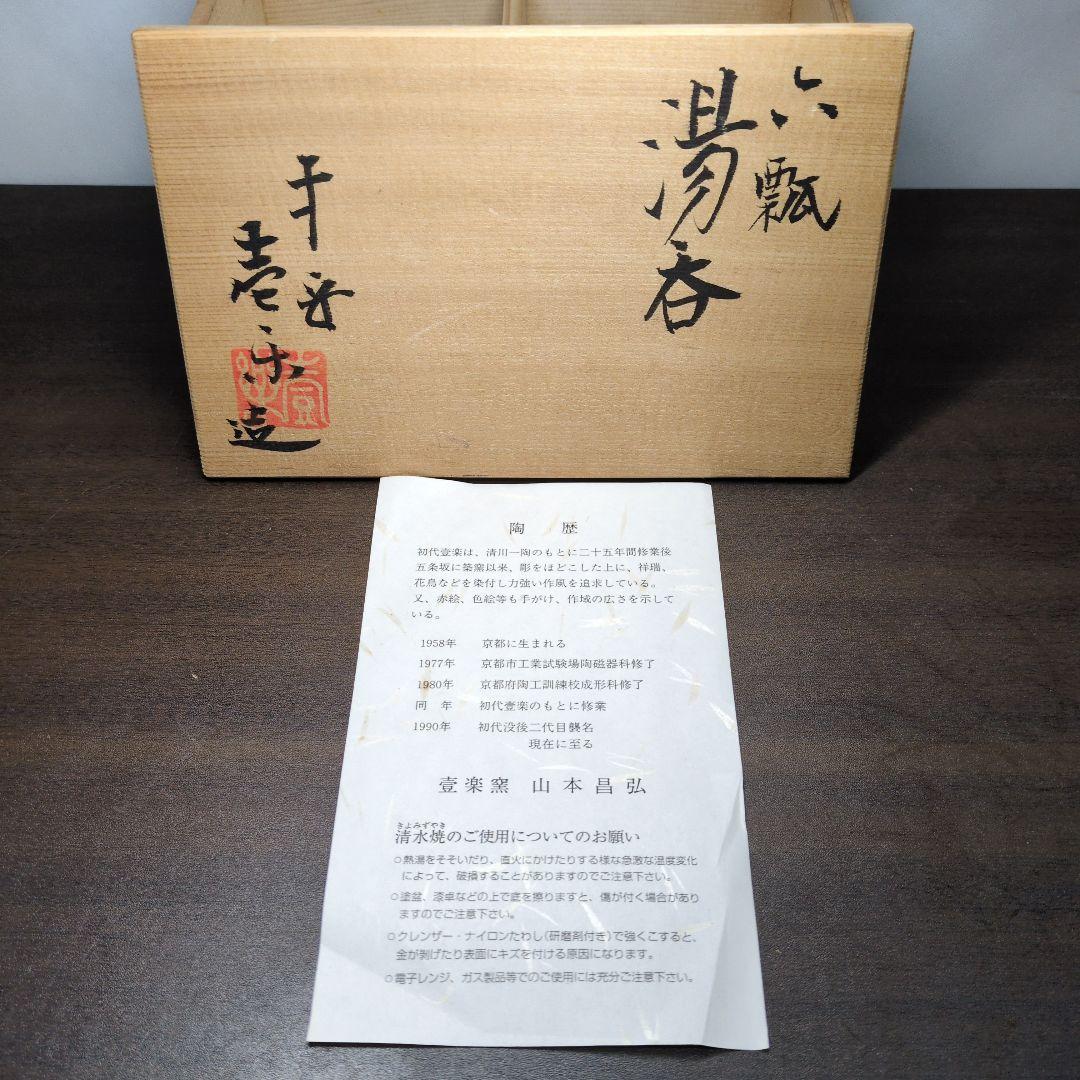 六瓢
湯呑
平安
壹楽造
陶歴
初代壹楽は、清川一陶のもとに二十五年間修業後
五条坂に築窯以来、彫をほどこした上に、祥瑞、
花鳥などを染付し力強い作風を追求している。
又、赤絵、色絵等も手がけ、作域の広さを示して
いる。
1958年 京都に生まれる
1977年 京都市工業試験場陶磁器科修了
1980年 京都府陶工訓練校成形科修了
同年 初代壹楽のもとに修業
1990年 初代没後二代目襲名
現在に至る
壹楽窯 山本昌弘
きよみずやき
清水焼のご使用についてのお願い
○熱湯をそそいだり、直火にかけたりする様な急激な温度変化
によって、破損することがありますのでご注意下さい。
○塗盆、漆卓などの上で底を擦りますと、傷が付く場合があり
ますのでご注意下さい。
○クレンザー・ナイロンたわし(研磨剤付き)で強くこすると、
金が剥げたり表面にキズを付ける原因になります。
○電子レンジ、ガス製品等でのご使用には充分ご注意下さい。